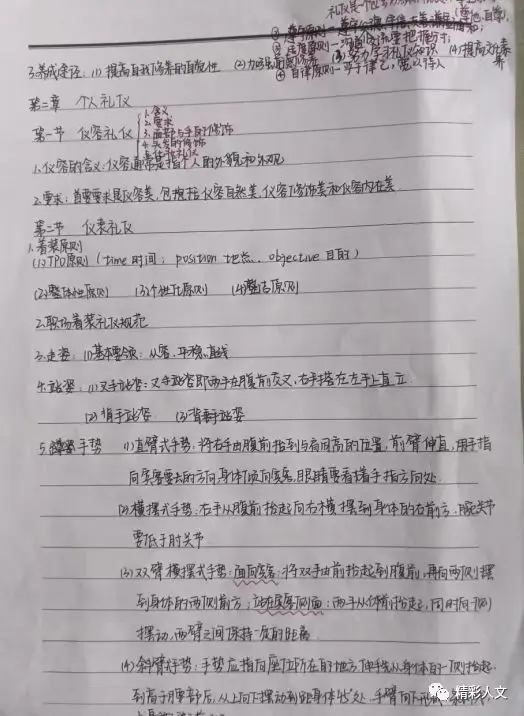 礼仪是一个
尊重原则
适度原则 把握分寸
④ 自律原则—严于律己,宽以待人
3.养成途径:(1)提高自我修养的自觉性 (2) (3)努力学习礼仪知识 (4)提高文化素养
第二章 个人礼仪
第一节 仪容礼仪
1.含义
2.要求
3.面部与手部的修饰
4.头发的修饰
1.仪容的含义:仪容通常是指个人的外貌和外观
2.要求:首要要求是仪容美,包括仪容自然美,仪容修饰美和仪容内在美
第二节 仪表礼仪
1.着装原则
(1)TPO原则(time 时间; position 地点、objective 目的)
(2)整体性原则 (3)个性化原则 (4)整洁原则
2.职场着装礼仪规范
3.走姿:(1)基本要领:从容、平稳、直线
4.站姿:(1)叉手站姿:叉手站姿即两手在腹前交叉,右手搭在左手上直立
(2)背手站姿 (3)背垂手站姿
5.手势 (1)直臂式手势:将右手由腹前抬到与肩同高的位置,前臂伸直,用手指
向来宾要去的方向,身体倾向来宾,眼睛要看着手指方向处
(2)横摆式手势:右手从腹前抬起向右横摆到身体的右前方,腕关节
要低于肘关节
(3)双臂横摆式手势:面向来宾:将双手由前抬起到腹前,再向两侧摆
到身体的两侧前方;站在来宾侧面:两手从体前抬起,同时向一侧
摆动,两臂之间保持一定的距离
(4)斜臂式手势:手势应指向座位所在的地方,伸手先从身体的一侧抬起,
到高于腰部后,从上向下摆动到距身体45°处,手臂向下
精彩人文